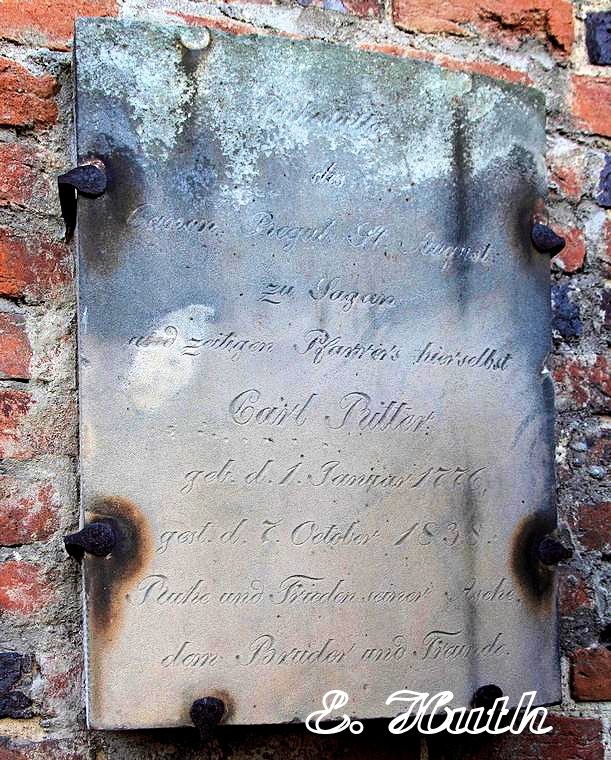 Ruhestätte
des
Canon. Regul. St. August.
zu Sagan
und zeitigen Pfarrers hierselbst
Carl Ritter,
geb. d. 1. Januar 1776,
gest. d. 7. October 1838.
Ruhe und Frieden seiner Asche,
dem Bruder und Freunde.
E. Huth